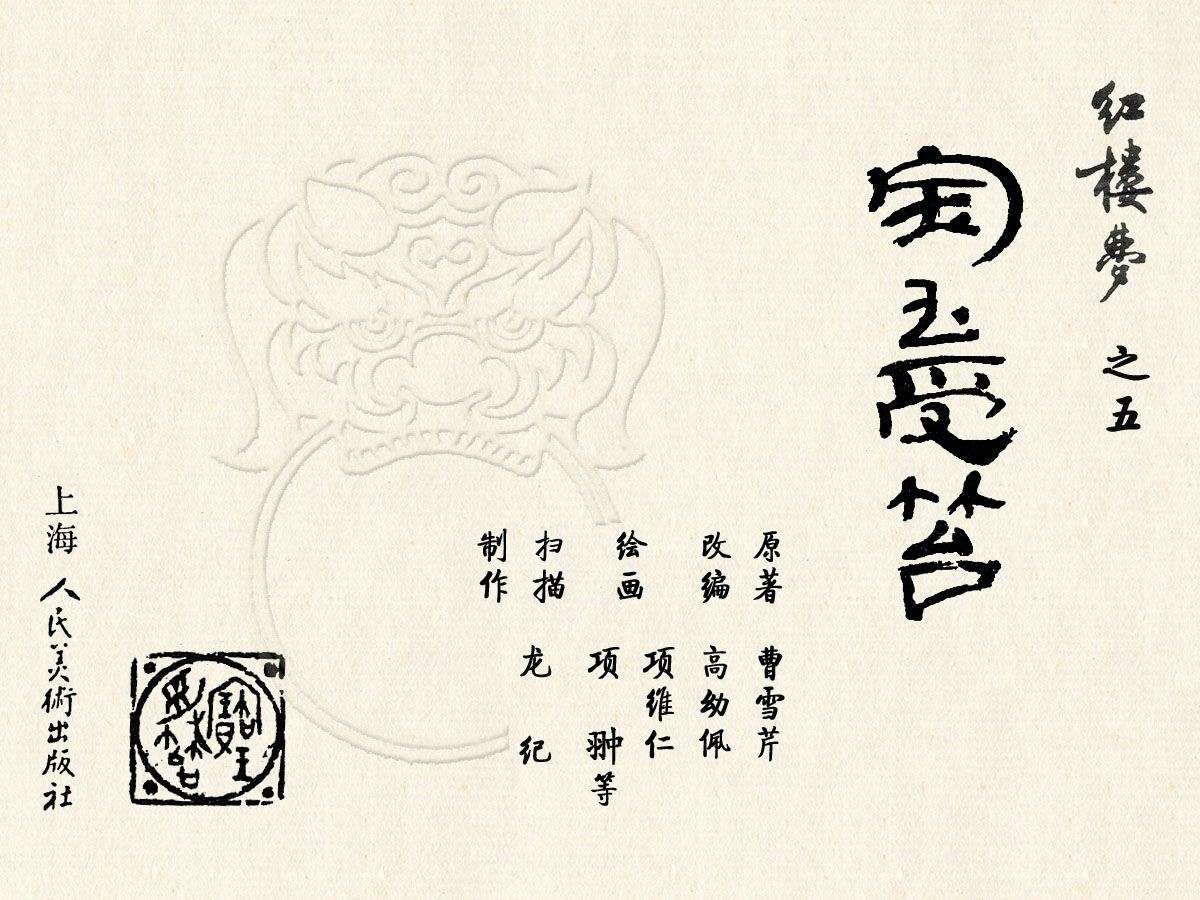 红楼梦 之五
宝玉受笞
原著 曹雪芹
改编 高幼佩
绘画 项维仁
项翀等
扫描 龙纪
制作
上海人民美術出版社